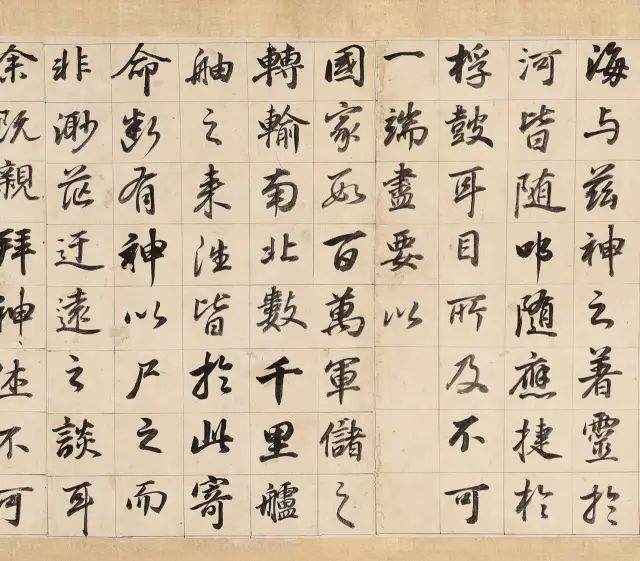 海与茲神之著靈於
河皆随叩随應捷於
桴鼓耳目所及不可
一端盡要以
國家數百萬軍儲之
轉輸南北數千里艫
舳之来往皆於此寄
命斷有神以尸之而
非渺茫迂遠之談耳
余既親拜神
不可